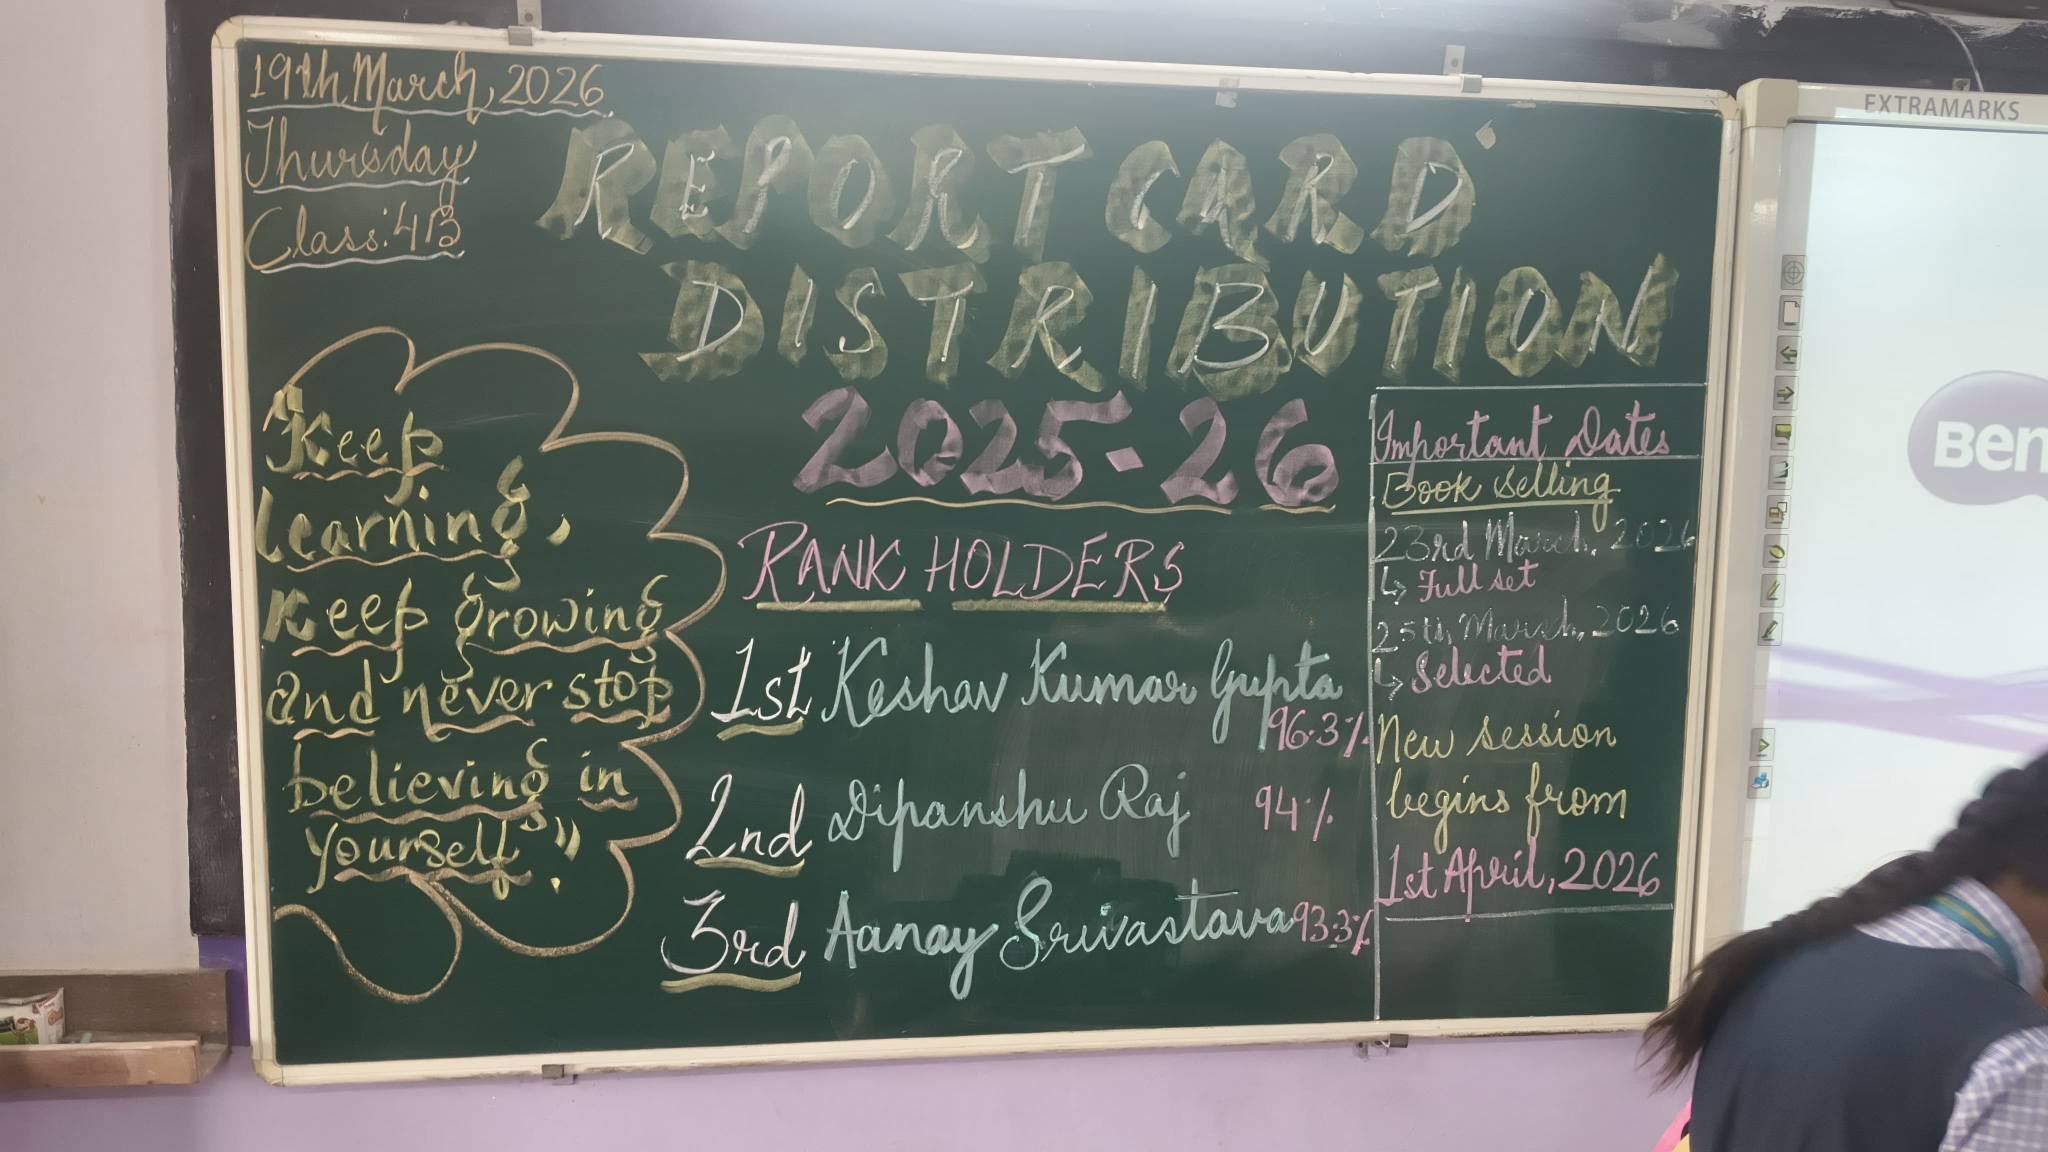 19th March, 2026
Thursday
Class: 4B
REPORT CARD
DISTRIBUTION
2025-26
"Keep
learning,
Keep growing
and never stop
believing in
yourself".
RANK HOLDERS
1st Keshav Kumar Gupta
96.3%
2nd Dipanshu Raj 94%
3rd Aanay Srivastava 93.3%
Important Dates
Book Selling
23rd March, 2026
↳ Full set
25th March, 2026
↳ Selected
New session
begins from
1st April, 2026
EXTRAMARKS
Ben